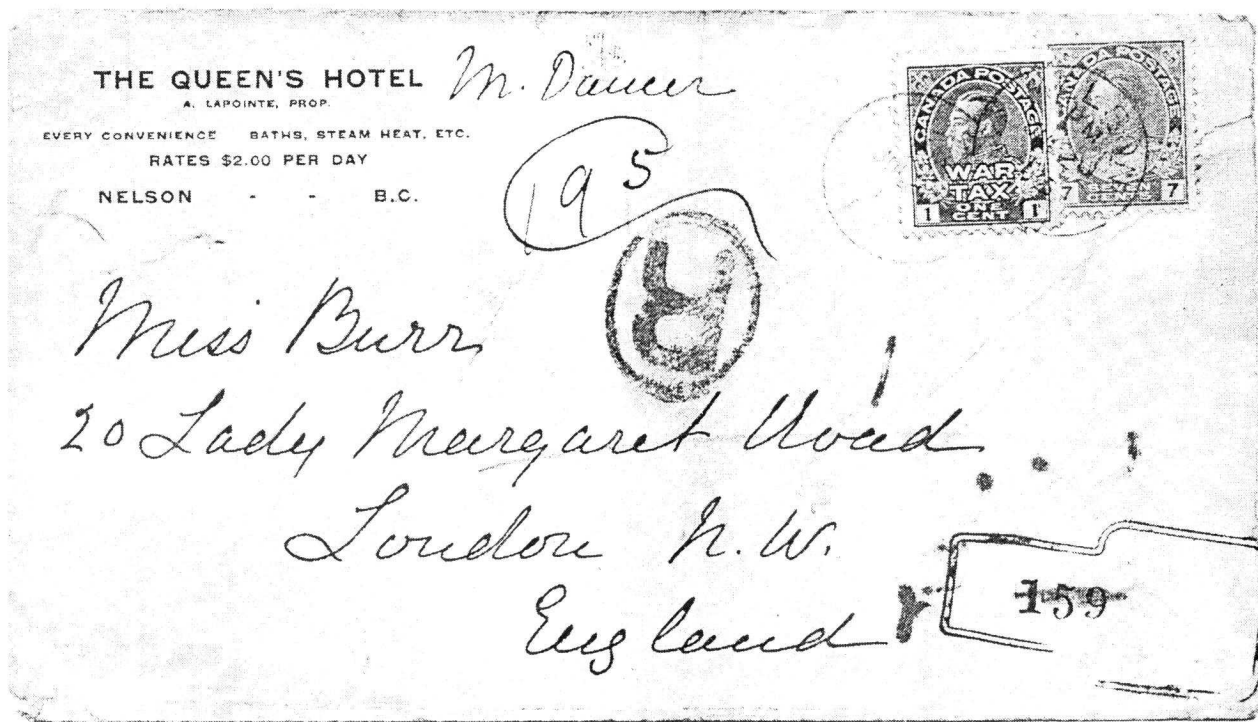 THE QUEEN'S HOTEL
A. LAPOINTE, PROP.
EVERY CONVENIENCE BATHS, STEAM HEAT, ETC.
RATES $2.00 PER DAY
NELSON - - B.C.
M. Daucer
195
CANADA POSTAGE
WAR
TAX
ONE
CENT
1 1
CANADA POSTAGE
SEVEN
CENTS
7 7
R
Miss Burr
20 Lady Margaret Road
London N.W.
England
159